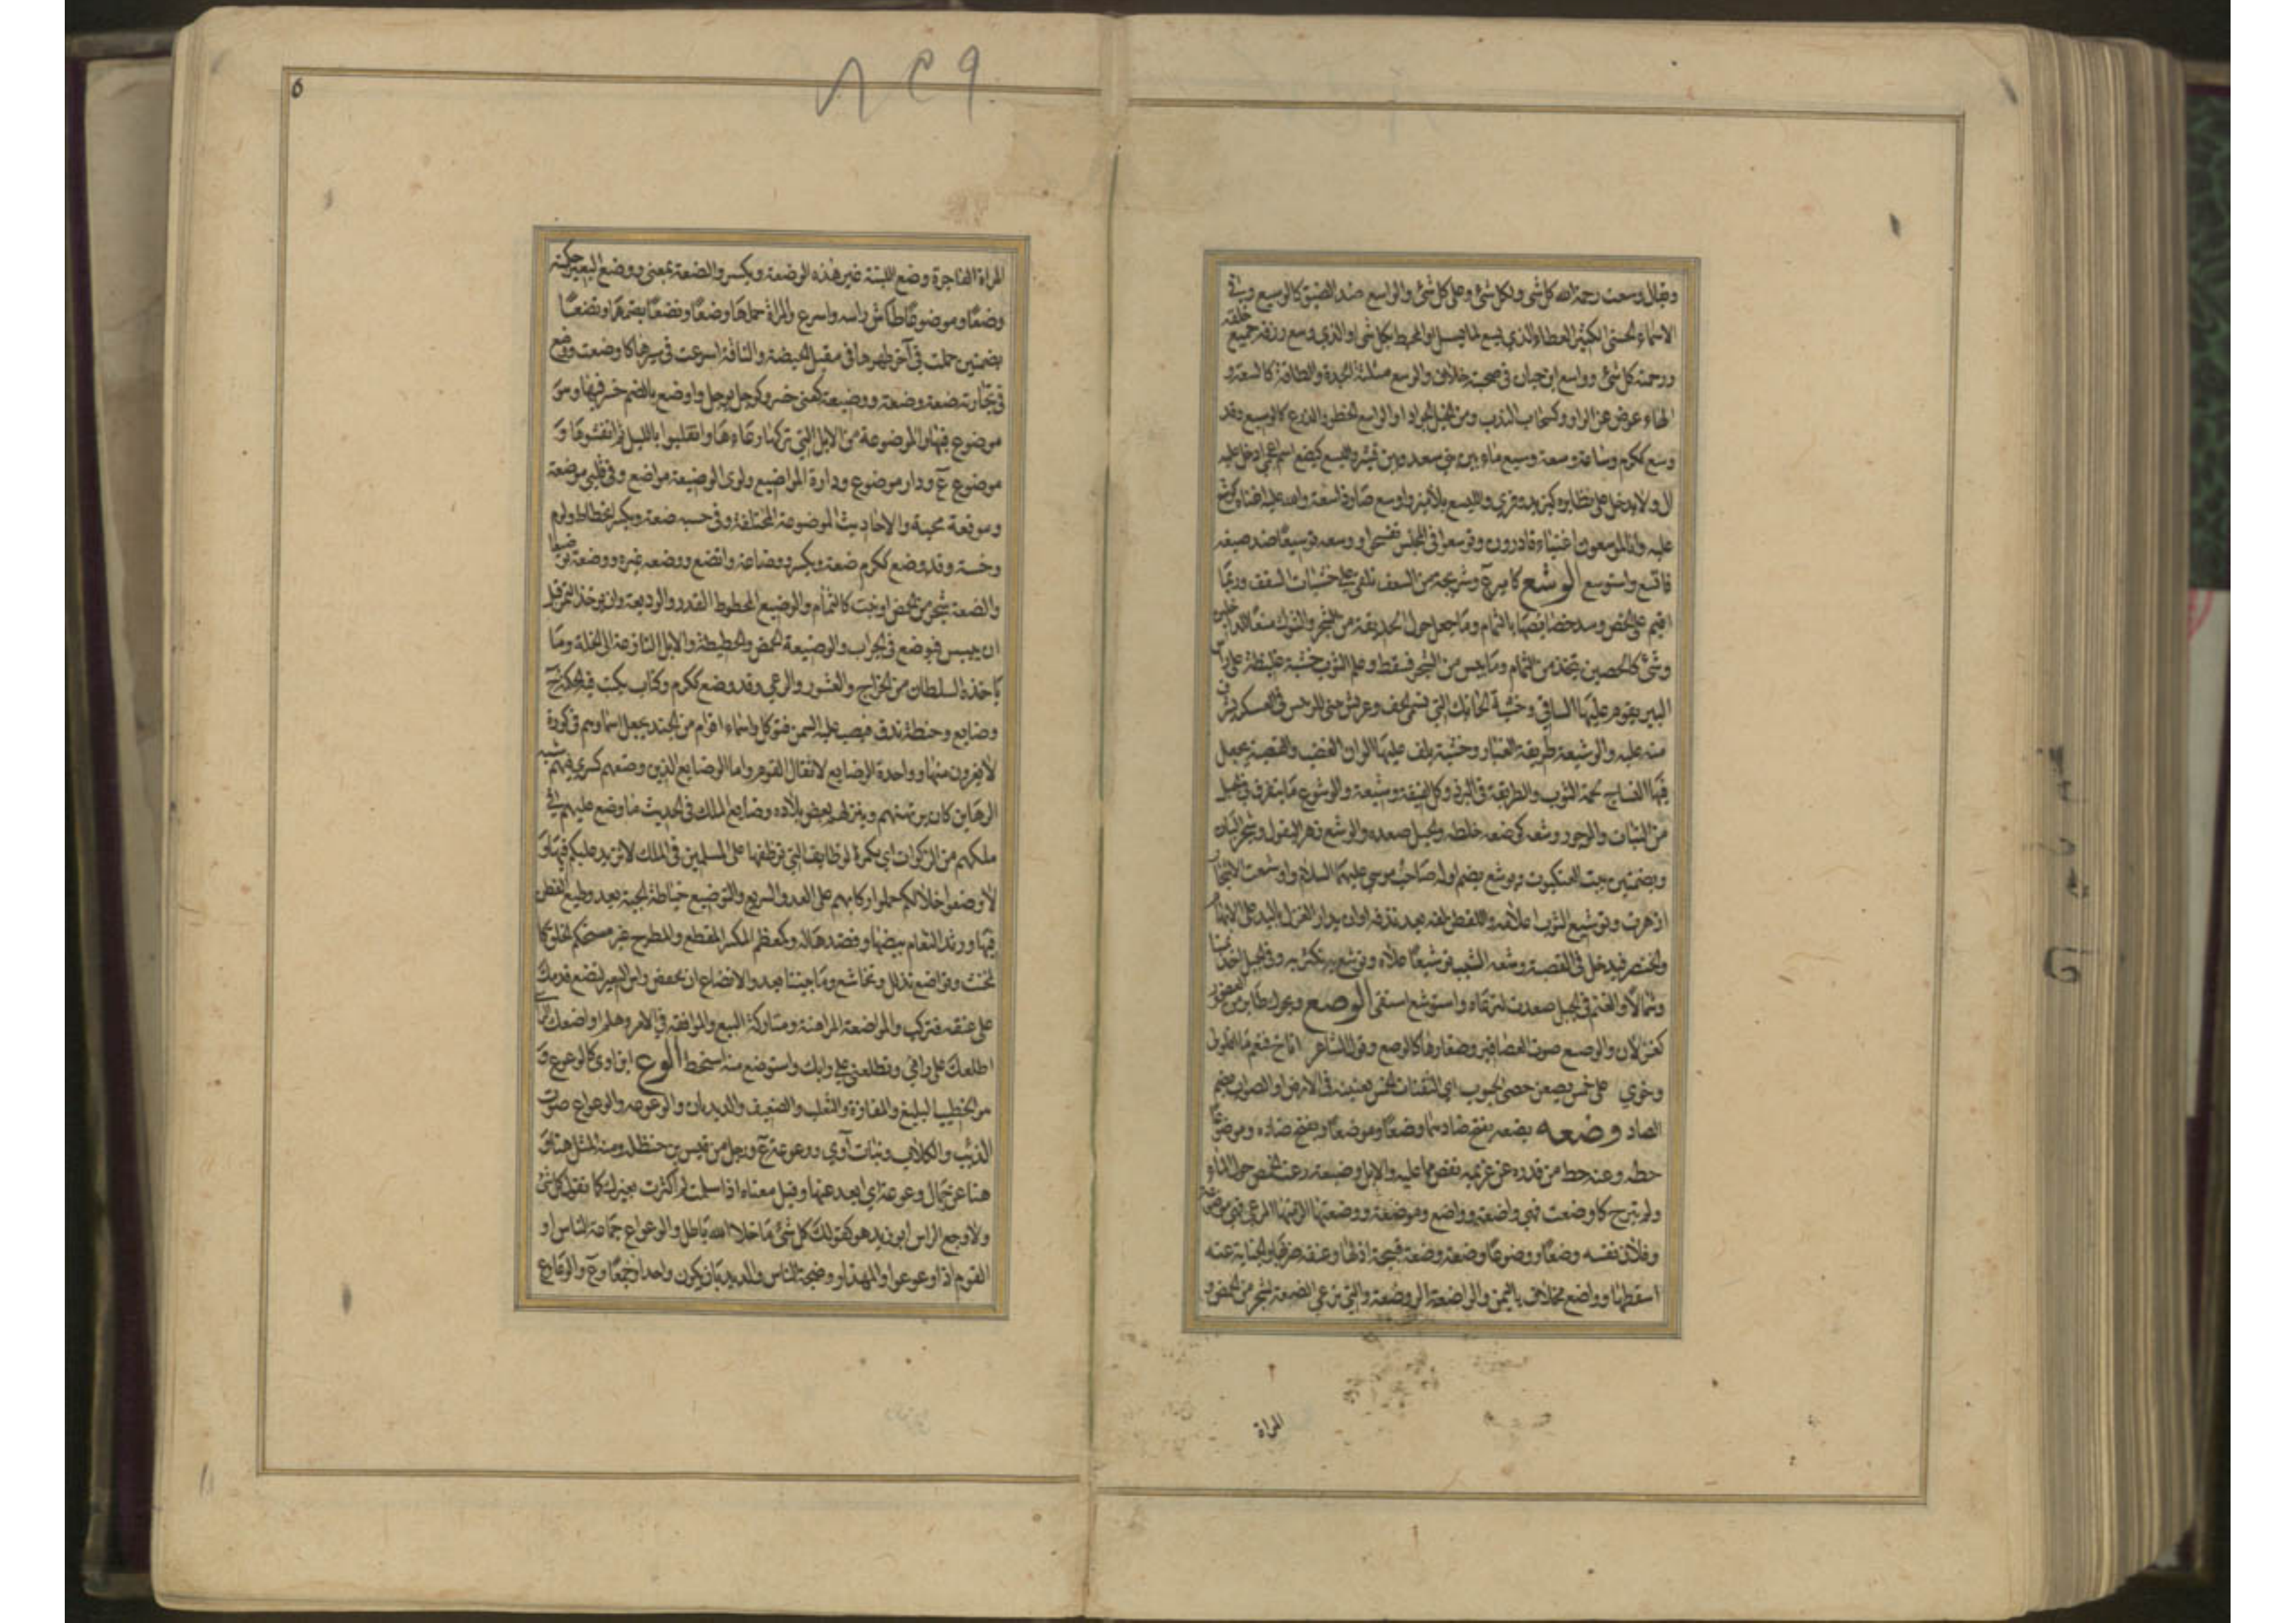 ويقال وسعت رحمة الله كل شئ ولكل شئ وعلى كل شئ والواسع ضد الضيق كالوسيع وفي
الاسماء الحسنى الكثير العطاء الذي يسع لما يسأل او المحيط بكل شئ او الذي وسع رزقه جميع خلقه
ورحمته كل شئ وواسع ابن حبان في صحبته خلاف والوسع مثلثة الجدة والطاقة كالسعة و
الهاء عوض عن الواو وكسحاب الندب ومن الخيل الجواد او الواسع الخطو والذرع كالوسيع وقد
وسع ككرم وساعة وسعة وسيع ماء بين بني سعد وبين قشير واليسع كيضع اسم اعجمي ادخل عليه
ال ولا يدخل على نظايره كيزيد وقرئ والليسع بلامين واوسع صار ذا سعة والله عليه اغناه كوسع
عليه وانا لموسعون اغنياء قادرون وتوسعوا في المجلس تفسحوا ووسعه توسيعا ضد ضيقه
فاتسع واستوسع الوشع كامير وشريجة من السعف تلقى على خشبات السقف وربما
اقيم على الخص وسد خصاصها بالثمام وما جعل حول الحديقة من الشجر والشوك منعا للداخلين
وشئ كالحصير يتخذ من الثمام وما يبس من الشجر فسقط وعلم الثوب وخشبة غليظة على راس
البير يقوم عليها الساقي وخشبة الحائك التي تسمى الحف وعريش يبنى للرئيس في العسكر يشرف
منه عليه والوشيعة طريقة الغبار وخشبة يلف عليها الوان الغضب والقصبة يجعل
فيها النساج لحمة الثوب والطريقة في البرد وكل لفيفة وشيعة والوشوع ما يتفرق في الجبل
من النبات والوجور وشعه كوضعه خلطه والجبل صعده والوشع زهر البقول وشجر البان
وبضمتين بيت العنكبوت ويوشع بضم اوله صاحب موسى عليهما السلام واوشعت الاشجار
ازهرت وتوشيع الثوب اعلامه والقطن لفه بعد ندفه او ان يدار الغزل باليد على الابهام
والخنصر فيدخل في القصبة وشعه الشيب توشيعا علاه وتوشع به تكثر به وفي الجبل اخذ يمينا
وشمالا والغنم في الجبل صعدت لترعاه واستوشع استقى الوصع ويحرك طاير من العصفور
كغزلان والوصيع صوت العصافير وصغارها كالوصع وقول الشاعر اناخ فنعم ما اقلولى
وخوى على خمس يصعن حصى الجبوب اي الثفنات الخمس يغيبنه في الارض او الصواب يضم
الصاد وضعه يضعه بفتح ضادهما وضعا وموضعا ويفتح ضاده وموضوعا
حطه وعنه حط من قدره وعن غريمه نقص مما عليه والابل وضيعة رعت الحمض حول الماء
ولم تبرح كاوضعت فهي واضعة وواضع وموضعة ووضعتها الزمتها المرعى فهي موضوعة
وفلان نفسه وضعا ووضوعا وضعة وضعة قبيحة اذلها وعنقه ضربها والجناية عنه
اسقطها وواضع مخلاف باليمن والواضعة الروضة والتي ترعى الضعة لشجر من الحمض و
المراة
٨٢٩
٥
المراة الفاجرة وضع اللبنة غير هذه الوضعة ويكسر والضعة بمعنى ووضع البعير حكمته
وضعا وموضوعا طاش راسه واسرع والمراة حملها وضعا وتضعا بضمها وتضعا
بضمتين حملت في آخر طهرها في مقبل الحيضة والناقة اسرعت في سيرها كاوضعت ووضع
في تجارته ضعة وضعة ووضيعة كعني خسر وكوجل يوجل واوضع بالضم خسر فيها وهو
موضوع فيها والموضوعة من الابل التي تركها رعاءها وانقلبوا بالليل ثم انفشوها و
موضوع ع ودار موضوع ودارة المواضيع ولوى الوضيعة مواضع وفي قلبي موضعة
وموقعة محبة والاحاديث الموضوعة المختلقة وفي حسبه ضعة ويكسر انحطاط ولوم
وخسة وقد وضع ككرم ضعة ويكسر ووضاعة واتضع ووضعه غيره ووضعه توضيعا
والضعة شجر من الحمض او نبت كالثمام والوضيع المحطوط القدر والوديعة وان يوخذ التمر قبل
ان ييبس فيوضع في الجراب والوضيعة الحمض والحطيطة والابل النازعة الى الخلة وما
ياخذه السلطان من الخراج والعشور والدعي وقد وضع ككرم وكتاب يكتب فيه الحكمة ج
وضايع وحنطة تدق فيصب عليه السمن فتوكل واسماء اقوام من الجند يجعل اسماوهم في كورة
لا يغزون منها وواحدة الوضايع لاثقال القوم واما الوضايع الذين وضعهم كسرى فهم شبه
الرهاين كان يرتهنهم وينزلهم بعض بلاده وضايع الملك في الحديث ما وضع عليهم في
ملكهم من الزكوات اي لكم الوظايف التي نوظفها على المسلمين في الملك لا نزيد عليكم فيها و
لاوضعوا خلالكم حملوا ركابهم على العدو السريع والتوضيع خياطة الجبة بعد وضع القطن
فيها ورثد النعام بيضها ونضدها له وكمعظم المكسر المقطع والمطرح غير مستحكم الخلق كا
لمخنث وتواضع تذلل وتخاشع وما بيننا بعد والاتضاع ان تخفض راس البعير لتضع قدمك
على عنقه فتركب والمواضعة المراهنة ومتاركة البيع والموافقة في الامر وهلم اواضعك الراي
اطلعك على رايي وتطلعني على رايك واستوضع منه استحط الوع ابن اوى كالوعوع و
هو الخطيب البليغ والمفازة والثعلب والضعيف والديدبان والوعوعة والوعواع صوت
الذيب والكلاب وبنات آوى ووعوعة ع ورجل من قيس بن حنظلة ومنه المثل هنا و
هنا عن جمال وعوعة اي ابعد عنها وقيل معناه اذا سلمت لم اكترث بغيرك كما تقول كل شئ
ولا وجع الراس ابو زيد هو كقولك كل شئ ما خلا الله باطل والوعواع جماعة الناس او
القوم اذا وعوعوا والمهذار وضجة الناس والديدبان يكون واحدا وجمعا وع والوعاوع